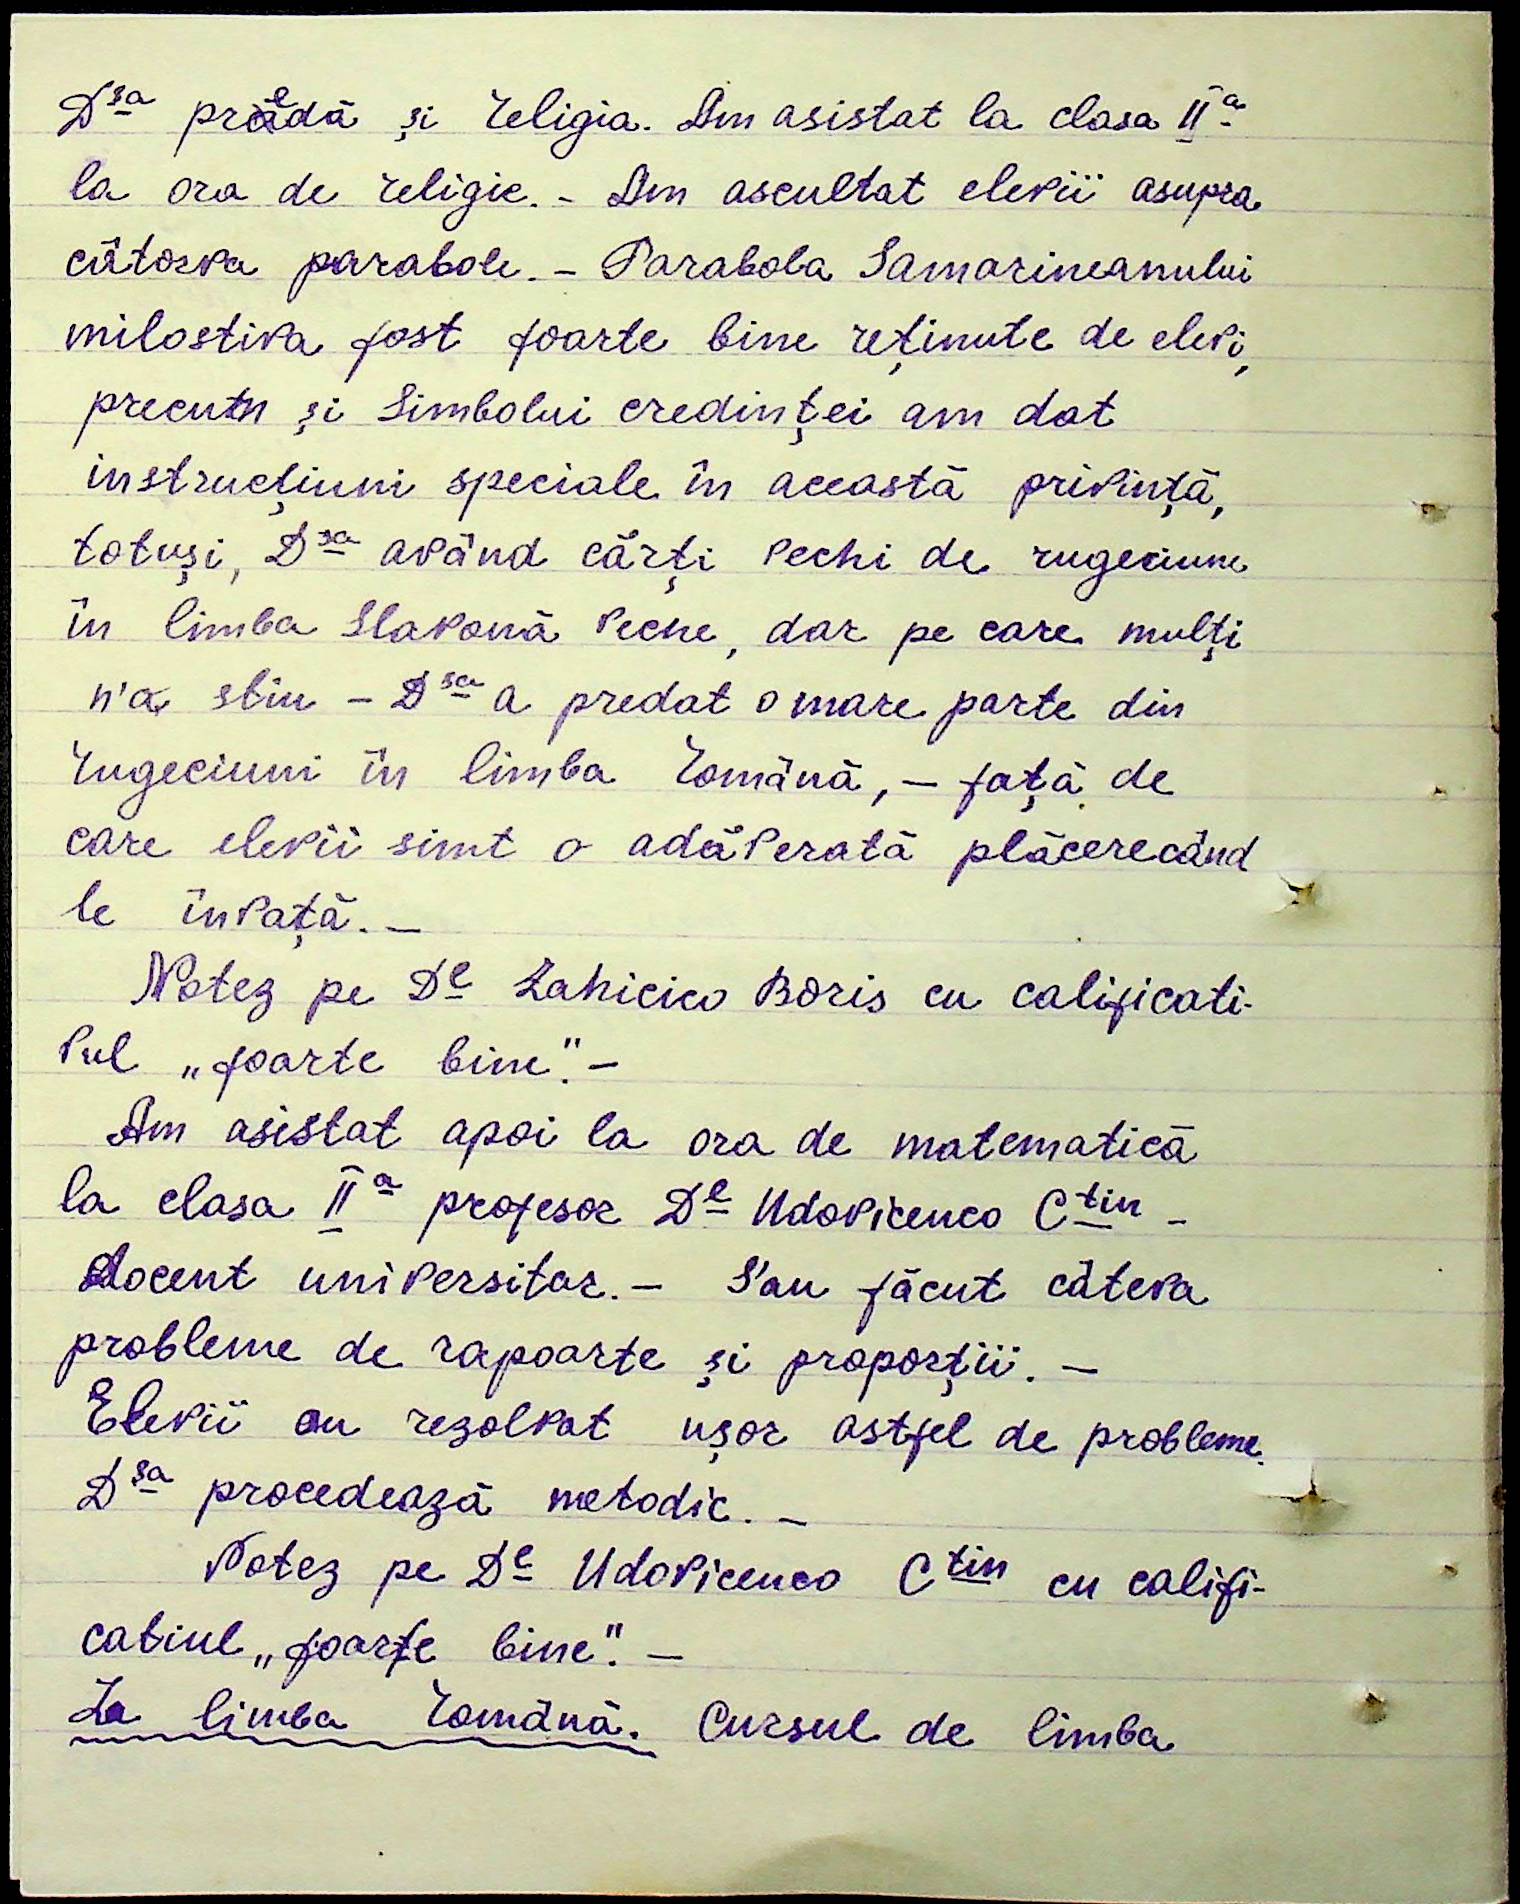 Dsa predă și religia. Am asistat la clasa IIa
la ora de religie. - Am ascultat elevii asupra
câtorva parabole. - Parabola Samarineanului
milostiva fost foarte bine reținute de elevi,
precum și Simbolui credinței am dat
instrucțiuni speciale în această privință,
totuși, Dsa având cărți vechi de rugeciune
în limba Slavonă veche, dar pe care mulți
n'a stiu - Dsa a predat o mare parte din
rugeciuni în limba română, - față de
care elevii simt o adăverată plăcere când
le învață. -
Notez pe Dl Zahicico Boris cu calificati-
vul „foarte bine". -
Am asistat apoi la ora de matematică
la clasa IIa profesor Dl Udovicenco Ctin -
Docent universitar. - S'au făcut câteva
probleme de rapoarte și proporții. -
Elevii au rezolvat ușor astfel de probleme.
Dsa procedează metodic. -
Notez pe Dl Udovicenco Ctin cu califi-
catiul „foarte bine". -
La limba română. Cursul de limba